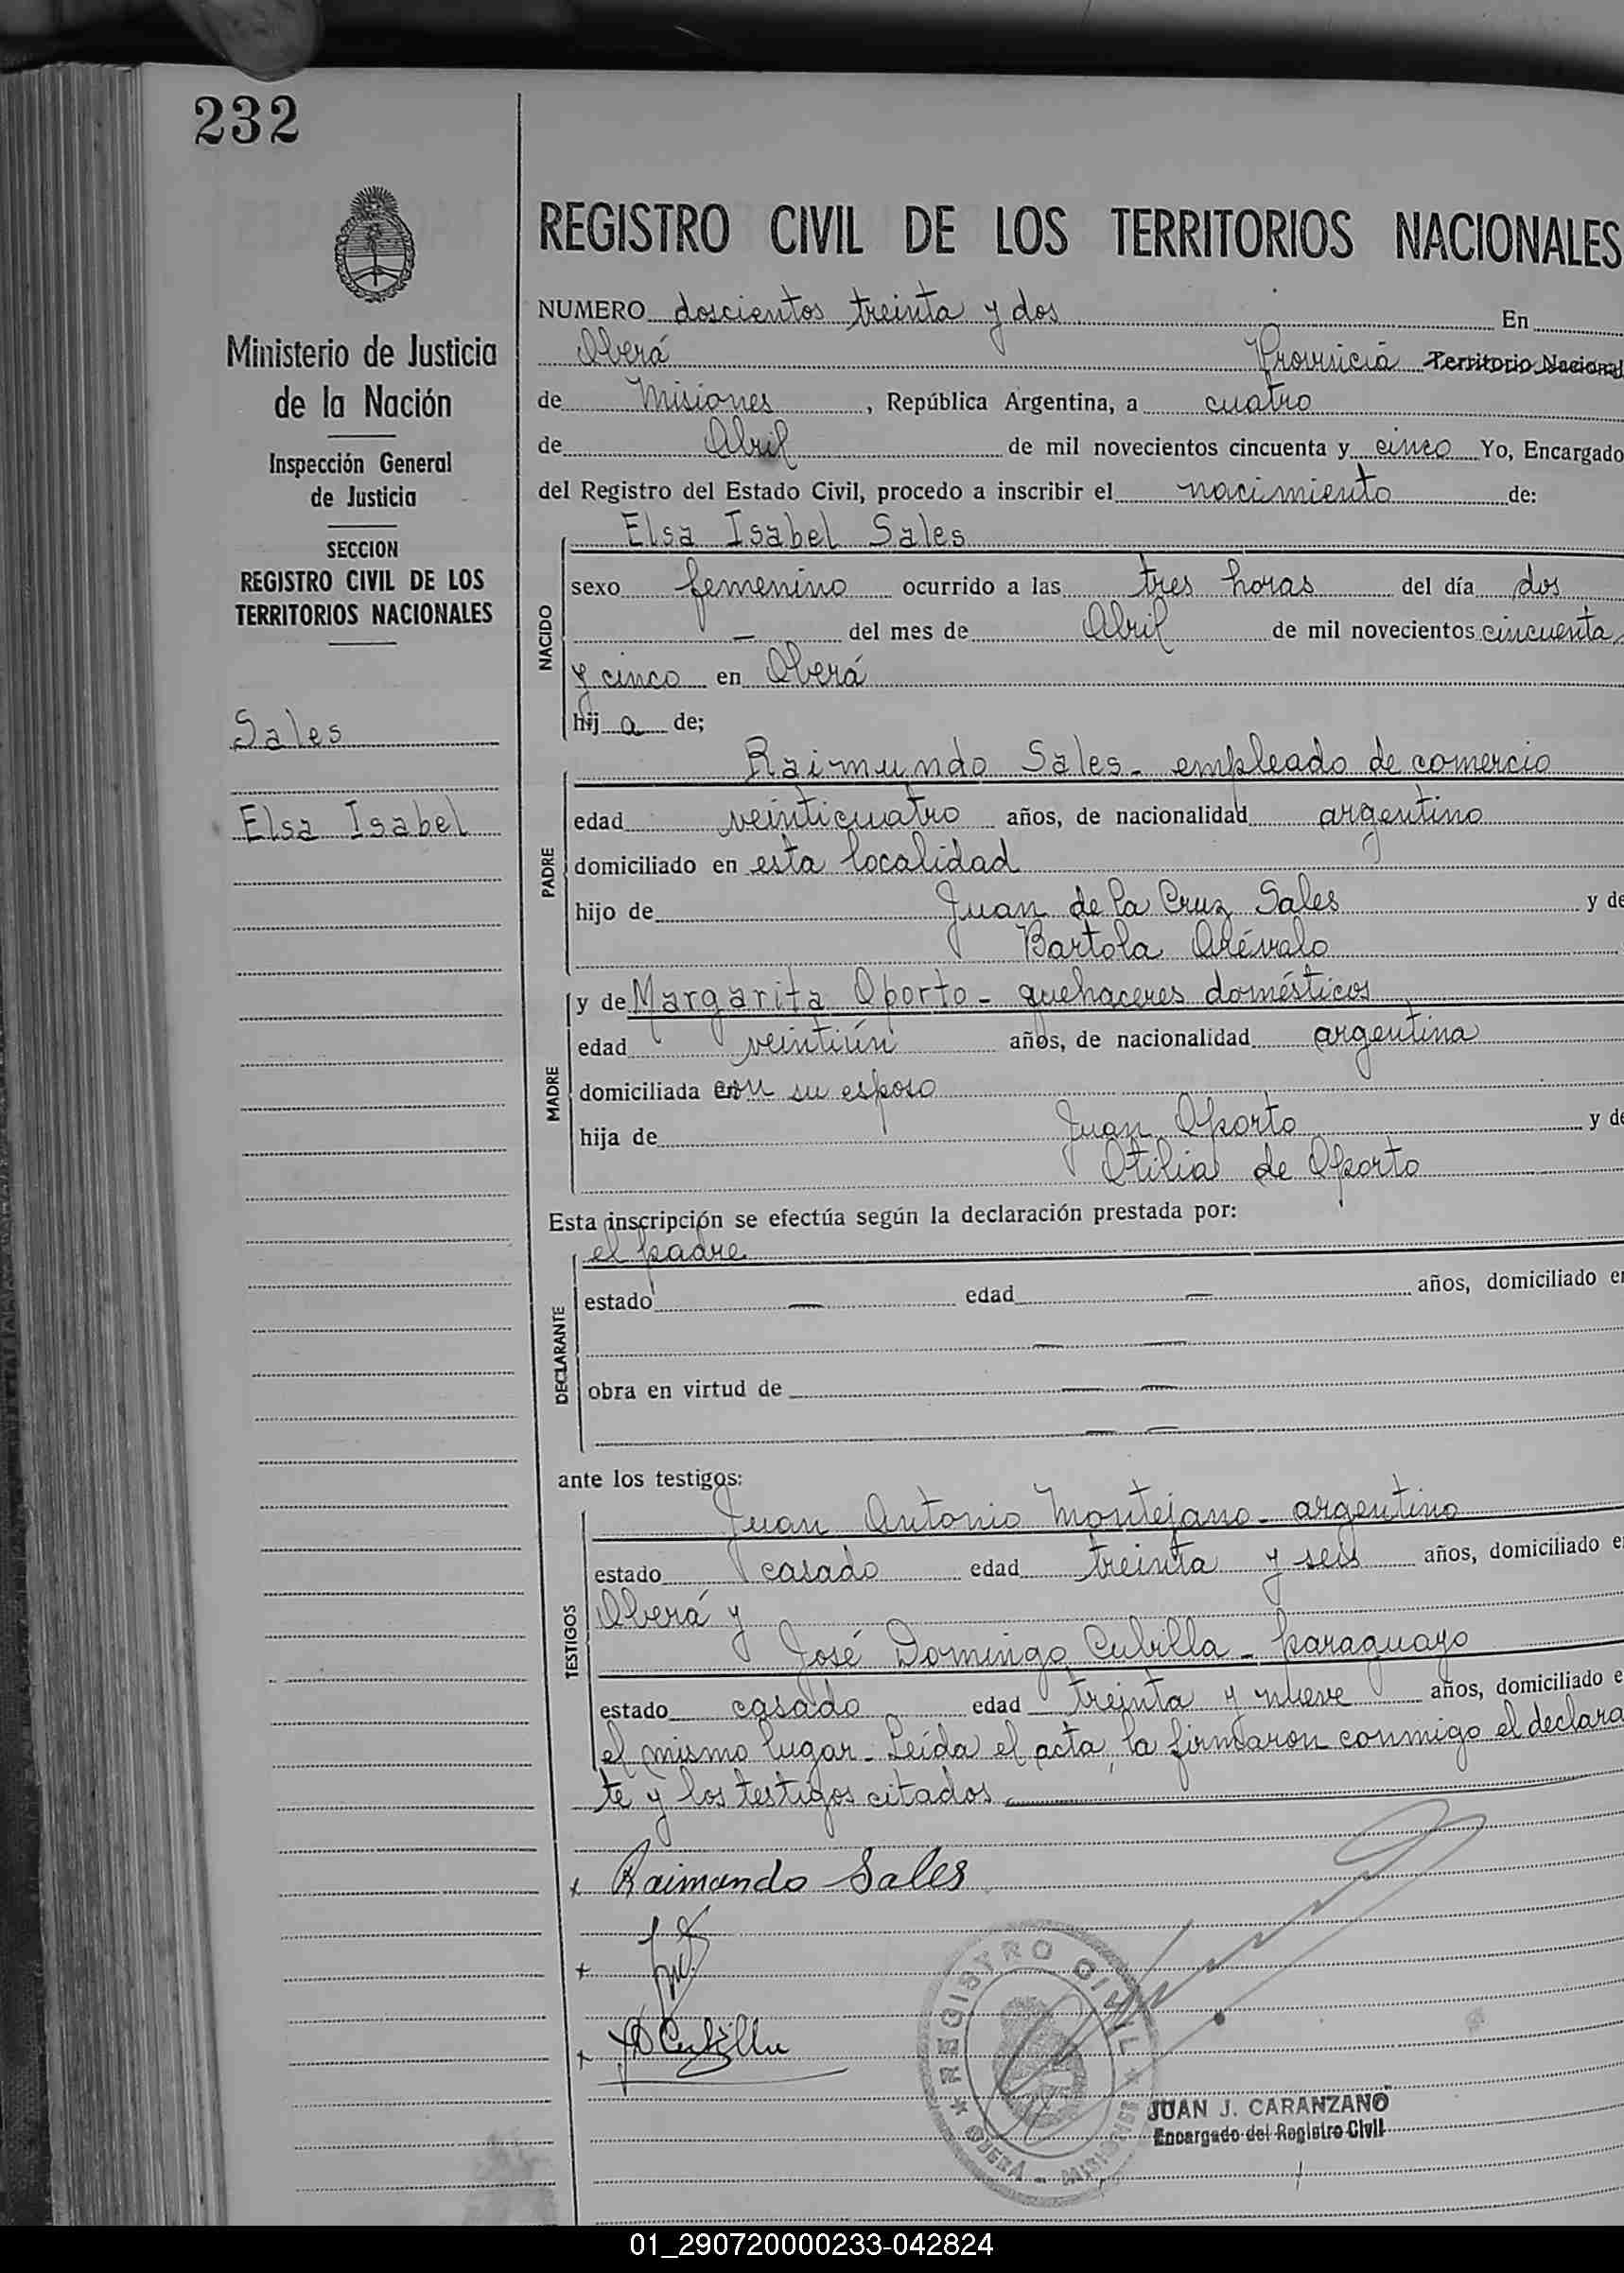 232
REGISTRO CIVIL DE LOS TERRITORIOS NACIONALES
Ministerio de Justicia
de la Nación
Inspección General
de Justicia
SECCION
REGISTRO CIVIL DE LOS
TERRITORIOS NACIONALES
Sales
Elsa Isabel
NUMERO doscientos treinta y dos En
Oberá Provincia Territorio Nacional
de Misiones, República Argentina, a cuatro
de Abril de mil novecientos cincuenta y cinco Yo, Encargado
del Registro del Estado Civil, procedo a inscribir el nacimiento de:
NACIDO
Elsa Isabel Sales
sexo femenino ocurrido a las tres horas del día dos
— del mes de Abril de mil novecientos cincuenta
y cinco en Oberá
hija de;
PADRE
Raimundo Sales - empleado de comercio
edad veinticuatro años, de nacionalidad argentino
domiciliado en esta localidad
hijo de Juan de la Cruz Sales y de
Bartola Arévalo
MADRE
y de Margarita Oporto - quehaceres domésticos
edad veintiún años, de nacionalidad argentina
domiciliada con su esposo
hija de Juan Oporto y de
Otilia de Oporto
Esta inscripción se efectúa según la declaración prestada por:
DECLARANTE
el padre
estado — edad — años, domiciliado en
— —
obra en virtud de — —
— —
ante los testigos:
TESTIGOS
Juan Antonio Montejano - argentino
estado casado edad treinta y seis años, domiciliado e
Oberá y
José Domingo Cubilla - paraguayo
estado casado edad treinta y nueve años, domiciliado e
el mismo lugar - Leída el acta, la firmaron conmigo el declara
te y los testigos citados
x Raimando Sales
x
x JDCubilla
REGISTRO CIVIL
OBERÁ - MISIONES
JUAN J. CARANZANO
Encargado del Registro Civil
01_290720000233-042824